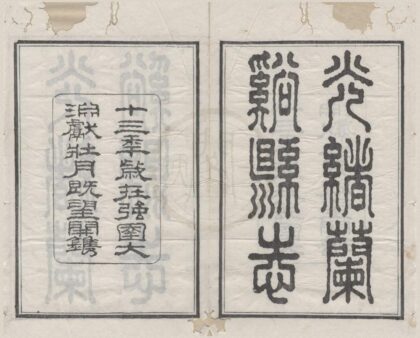 光緒蘭
谿縣志
十三季歲在強圉大
淵獻壯月既望開鐫